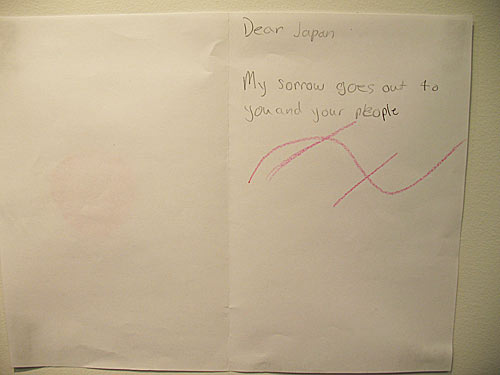 Dear Japan
My sorrow goes out to
you and your people